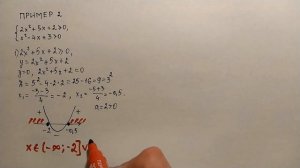 ПРИМЕР 2
{2x²+5x+2≥0,
x²-4x+3>0
1) 2x²+5x+2≥0,
y=2x²+5x+2
y=0, 2x²+5x+2=0
D=5²-4·2·2=25-16=9=3²
x₁=(-5-3)/4=-2, x₂=(-5+3)/4=-0,5.
a=2>0
+ - +
-2 -0,5
x∈(-∞;-2]∪